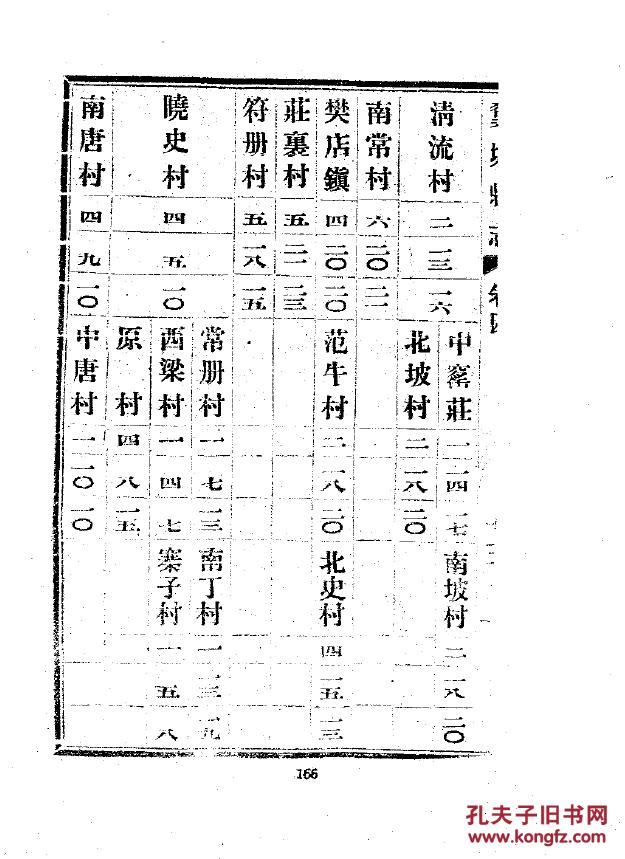 清流村 二 一三 一六
中窰莊 一 一四 一七 南坡村 二 一八 二〇
北坡村 二 一八 二〇
南常村 六 二〇 二一
樊店鎮 四 二〇 二〇 范牛村 二 一八 二〇 北史村 四 一五 一三
莊裏村 五 二一 二三
符册村 五 一八 一五
曉史村 四 五 一〇
常册村 一 七 一三 南丁村 一 一三 一九
西梁村 一 四 七 寨子村 一 五 八
原村 四 八 一五
南唐村 四 九 一〇 中唐村 一 一〇 一〇
166
孔夫子旧书网
www.kongfz.com